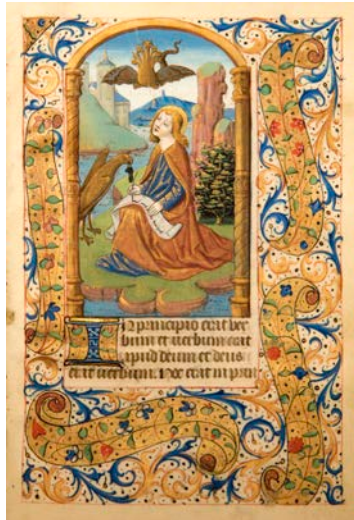 In principio erat ver
bum et verbum erat
apud deum et deus
erat verbum. Hoc erat in prin